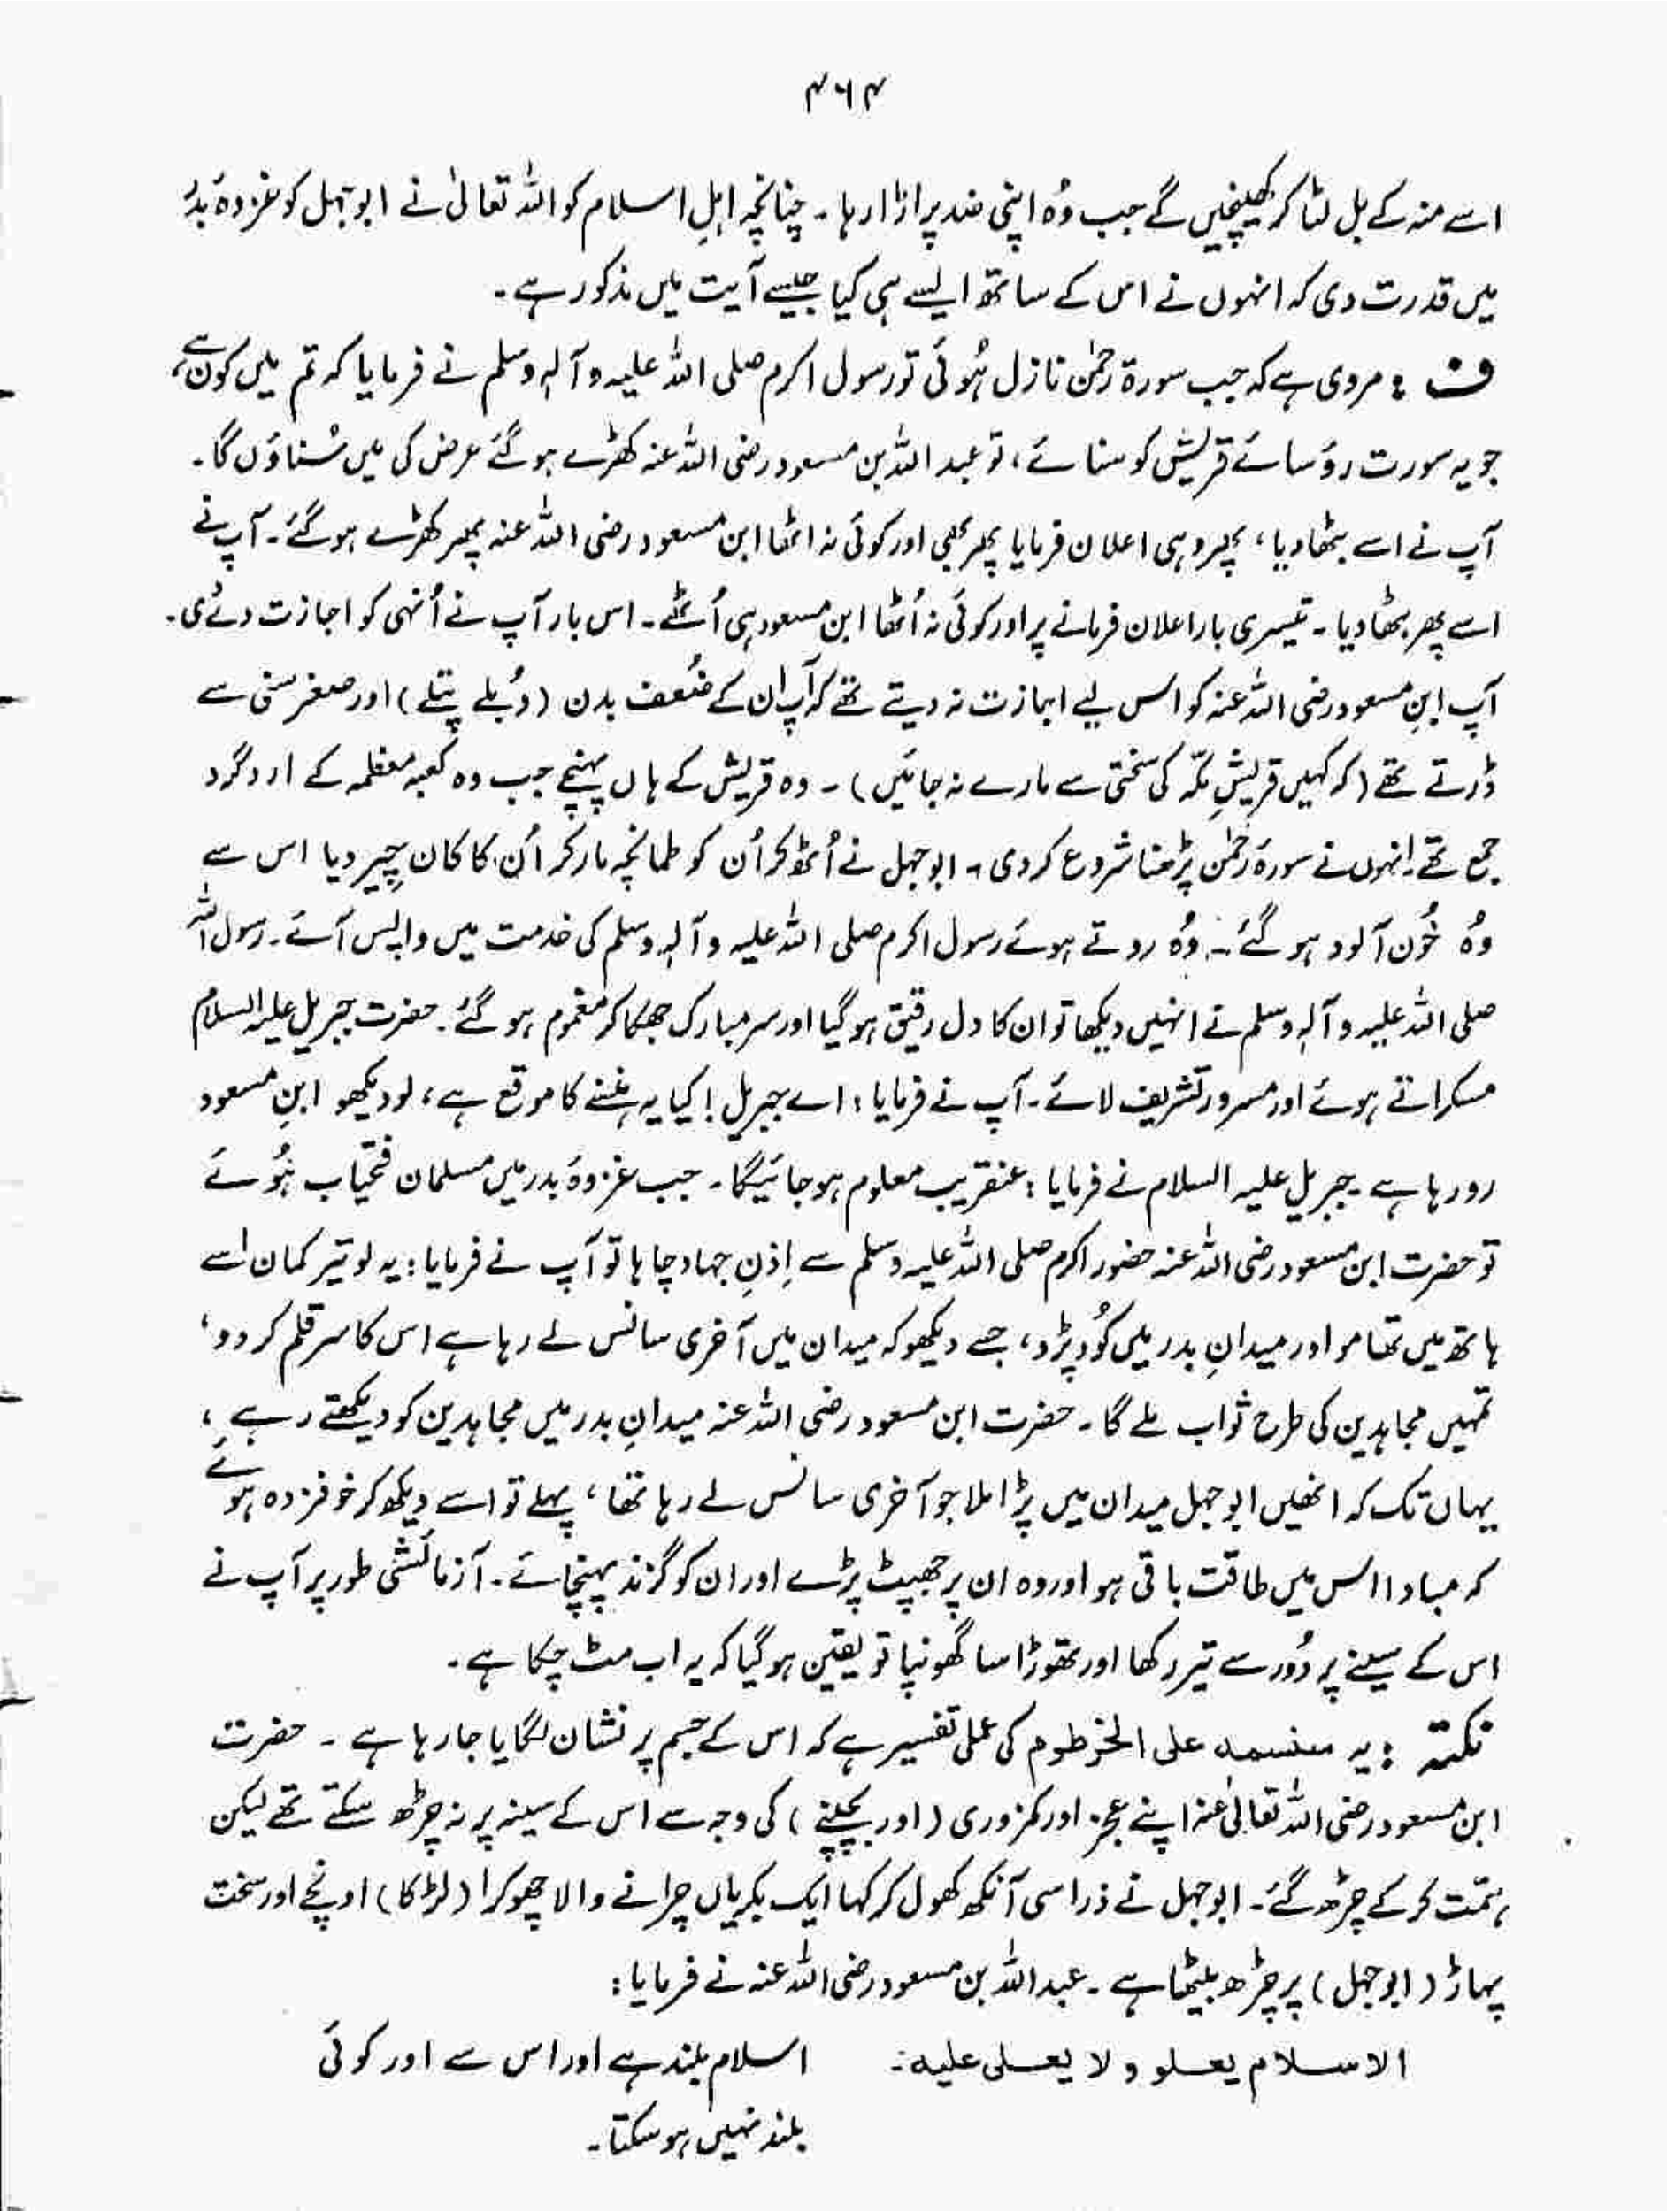 ۴۶۴
اسے منہ کے بل لٹا کر کھینچیں گے جب وُہ اپنی ضد پر اڑا رہا۔ چنانچہ اہلِ اسلام کو اللہ تعالیٰ نے ابوجہل کو غزوۂ بدر
میں قدرت دی کہ انہوں نے اس کے ساتھ ایسے ہی کیا جیسے آیت میں مذکور ہے۔
ف : مروی ہے کہ جب سورۃ رحمٰن نازل ہُوئی تو رسول اکرم صلی اللہ علیہ وآلہٖ وسلم نے فرمایا کہ تم میں کون ہے،
جو یہ سورت رؤسائے قریش کو سنائے، تو عبد اللہ بن مسعود رضی اللہ عنہ کھڑے ہو گئے عرض کی میں سُناؤں گا۔
آپ نے اسے بٹھا دیا، پھر وہی اعلان فرمایا پھر بھی اور کوئی نہ اٹھا ابن مسعود رضی اللہ عنہ پھر کھڑے ہو گئے۔ آپ نے
اسے پھر بٹھا دیا۔ تیسری بار اعلان فرمانے پر اور کوئی نہ اُٹھا ابن مسعود ہی اُٹھے۔ اس بار آپ نے اُنہی کو اجازت دے دی۔
آپ ابنِ مسعود رضی اللہ عنہ کو اس لیے اجازت نہ دیتے تھے کہ آپ ان کے ضُعف بدن (دُبلے پتلے) اور صغر سنی سے
ڈرتے تھے (کہ کہیں قریشِ مکّہ کی سختی سے مارے نہ جائیں)۔ وہ قریش کے ہاں پہنچے جب وہ کعبہ معظمہ کے ارد گرد
جمع تھے انہوں نے سورۂ رحمٰن پڑھنا شروع کر دی۔ ابوجہل نے اُٹھ کر اُن کو طمانچہ مار کر اُن کا کان چِیر دیا اس سے
وُہ خُون آلود ہو گئے۔ وُہ روتے ہوئے رسول اکرم صلی اللہ علیہ وآلہٖ وسلم کی خدمت میں واپس آئے۔ رسول اللہ
صلی اللہ علیہ وآلہٖ وسلم نے انہیں دیکھا تو ان کا دل رقیق ہو گیا اور سر مبارک جھکا کر مغموم ہو گئے۔ حضرت جبریل علیہ السلام
مسکراتے ہوئے اور مسرور تشریف لائے۔ آپ نے فرمایا : اے جبریل! کیا یہ ہنسنے کا موقع ہے، لو دیکھو ابنِ مسعود
رو رہا ہے۔ جبریل علیہ السلام نے فرمایا : عنقریب معلوم ہو جائیگا۔ جب غزوۂ بدر میں مسلمان فتحیاب ہُوئے
تو حضرت ابن مسعود رضی اللہ عنہ حضور اکرم صلی اللہ علیہ وسلم سے اِذنِ جہاد چاہا تو آپ نے فرمایا : یہ لو تیر کمان اسے
ہاتھ میں تھامو اور میدانِ بدر میں کُود پڑو، جسے دیکھو کہ میدان میں آخری سانس لے رہا ہے اس کا سر قلم کر دو،
تمہیں مجاہدین کی طرح ثواب ملے گا۔ حضرت ابن مسعود رضی اللہ عنہ میدانِ بدر میں مجاہدین کو دیکھتے رہے،
یہاں تک کہ انھیں ابوجہل میدان میں پڑا ملا جو آخری سانس لے رہا تھا، پہلے تو اسے دیکھ کر خوفزدہ ہوئے
کہ مبادا اس میں طاقت باقی ہو اور وہ ان پر جھپٹ پڑے اور ان کو گزند پہنچائے۔ آزمائشی طور پر آپ نے
اس کے سینے پر دُور سے تیر رکھا اور تھوڑا سا گھونپا تو یقین ہو گیا کہ یہ اب مٹ چکا ہے۔
نکتہ : یہ سنسمہ علی الخرطوم کی عملی تفسیر ہے کہ اس کے جسم پر نشان لگایا جا رہا ہے ۔ حضرت
ابن مسعود رضی اللہ تعالیٰ عنہ اپنے عجز اور کمزوری (اور بچپنے) کی وجہ سے اس کے سینہ پر نہ چڑھ سکتے تھے لیکن
ہمّت کر کے چڑھ گئے۔ ابوجہل نے ذرا سی آنکھ کھول کر کہا ایک بکریاں چرانے والا چھوکرا (لڑکا) اونچے اور سخت
پہاڑ (ابوجہل) پر چڑھ بیٹھا ہے ۔ عبد اللہ بن مسعود رضی اللہ عنہ نے فرمایا :
الاسلام یعلو ولا یعلی علیہ۔ اسلام بلند ہے اور اس سے اور کوئی
بلند نہیں ہو سکتا۔